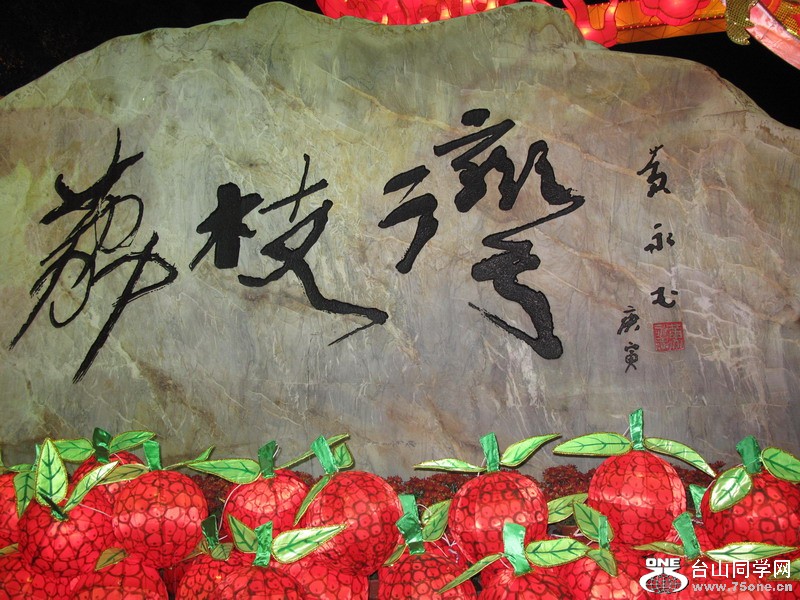 荔枝灣
黄永玉
庚寅
ONE
75
台山同学网
www.75one.cn